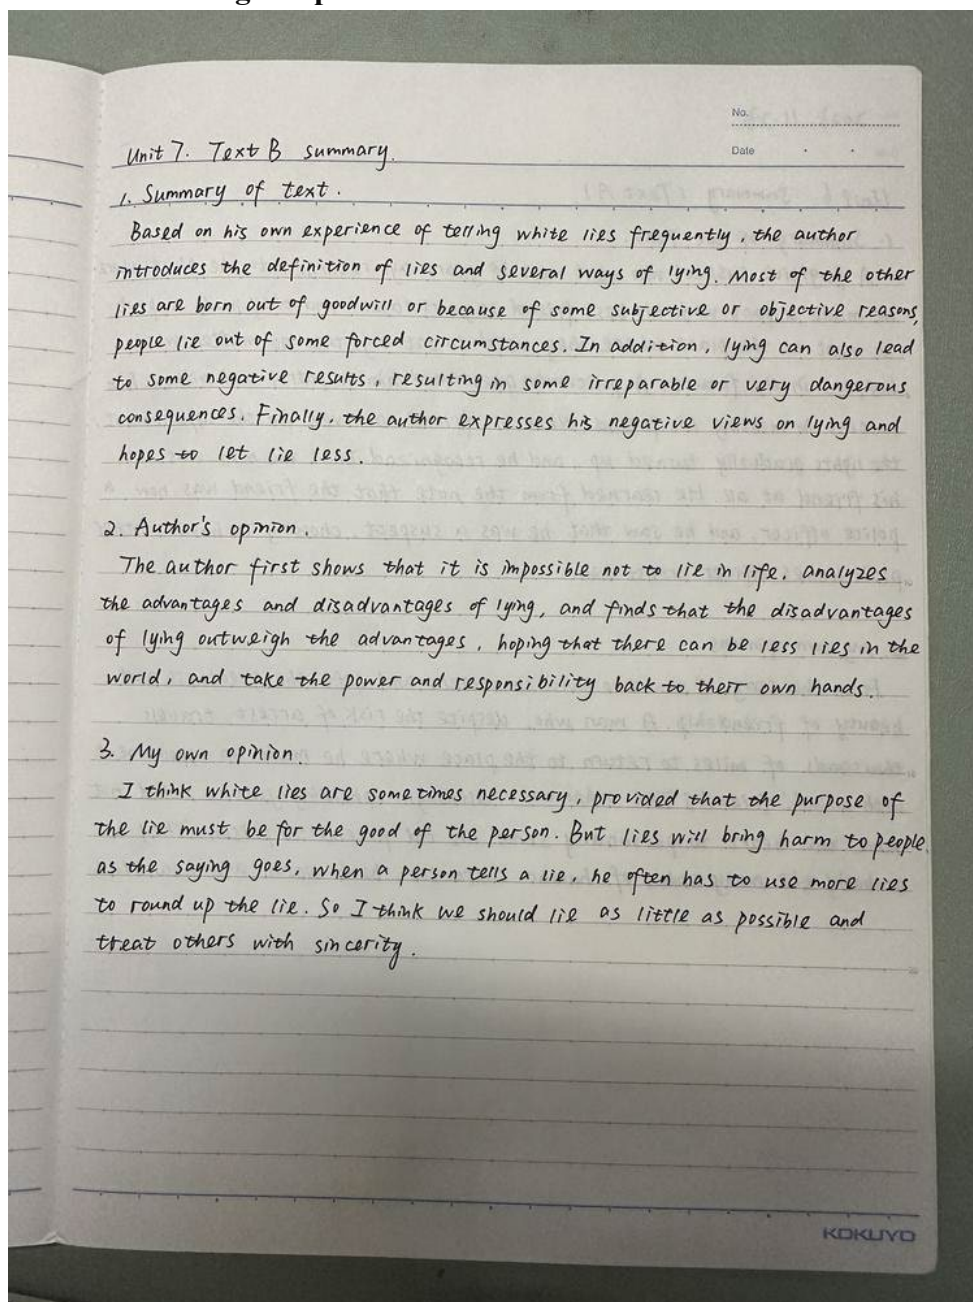 No.
Date
Unit 7. Text B summary.
1. Summary of text.
Based on his own experience of telling white lies frequently, the author
introduces the definition of lies and several ways of lying. Most of the other
lies are born out of goodwill or because of some subjective or objective reasons,
people lie out of some forced circumstances. In addition, lying can also lead
to some negative results, resulting in some irreparable or very dangerous
consequences. Finally, the author expresses his negative views on lying and
hopes to let lie less.
2. Author's opinion.
The author first shows that it is impossible not to lie in life, analyzes
the advantages and disadvantages of lying, and finds that the disadvantages
of lying outweigh the advantages, hoping that there can be less lies in the
world, and take the power and responsibility back to their own hands.
3. My own opinion.
I think white lies are sometimes necessary, provided that the purpose of
the lie must be for the good of the person. But lies will bring harm to people,
as the saying goes, when a person tells a lie, he often has to use more lies
to round up the lie. So I think we should lie as little as possible and
treat others with sincerity.
KOKUYO